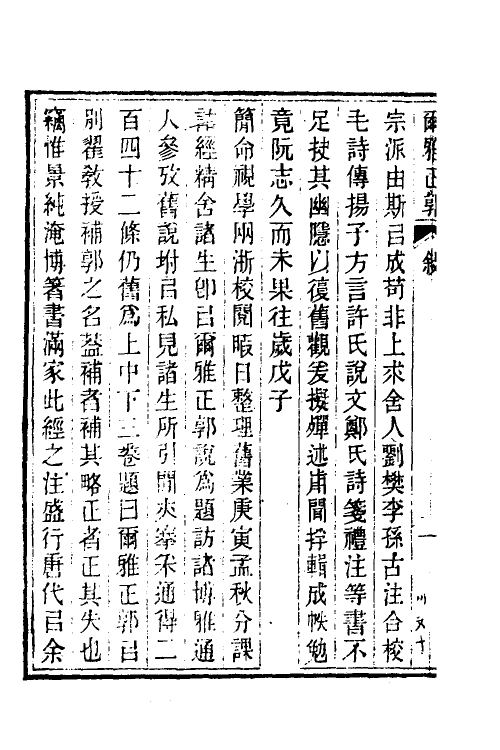 爾雅正郭 敘
宗派由斯㠯成苟非上求舍人劉樊李孫古注合校
毛詩傳揚子方言許氏說文鄭氏詩箋禮注等書不
足抉其幽隱以復舊觀爰擬殫述甫閒捊輯成帙勉
竟阮志久而未果往歲戊子
簡命視學兩浙校閱暇日整理舊業庚寅孟秋分課
詁經精舍諸生卽㠯爾雅正郭說爲題訪諸博雅通
人參攷舊說坿㠯私見諸生所引閒夾搴釆通得二
百四十二條仍舊爲上中下三卷題曰爾雅正郭㠯
別翟敎授補郭之名葢補者補其略正者正其失也
竊惟景純淹博箸書滿家此經之注盛行唐代㠯余
一